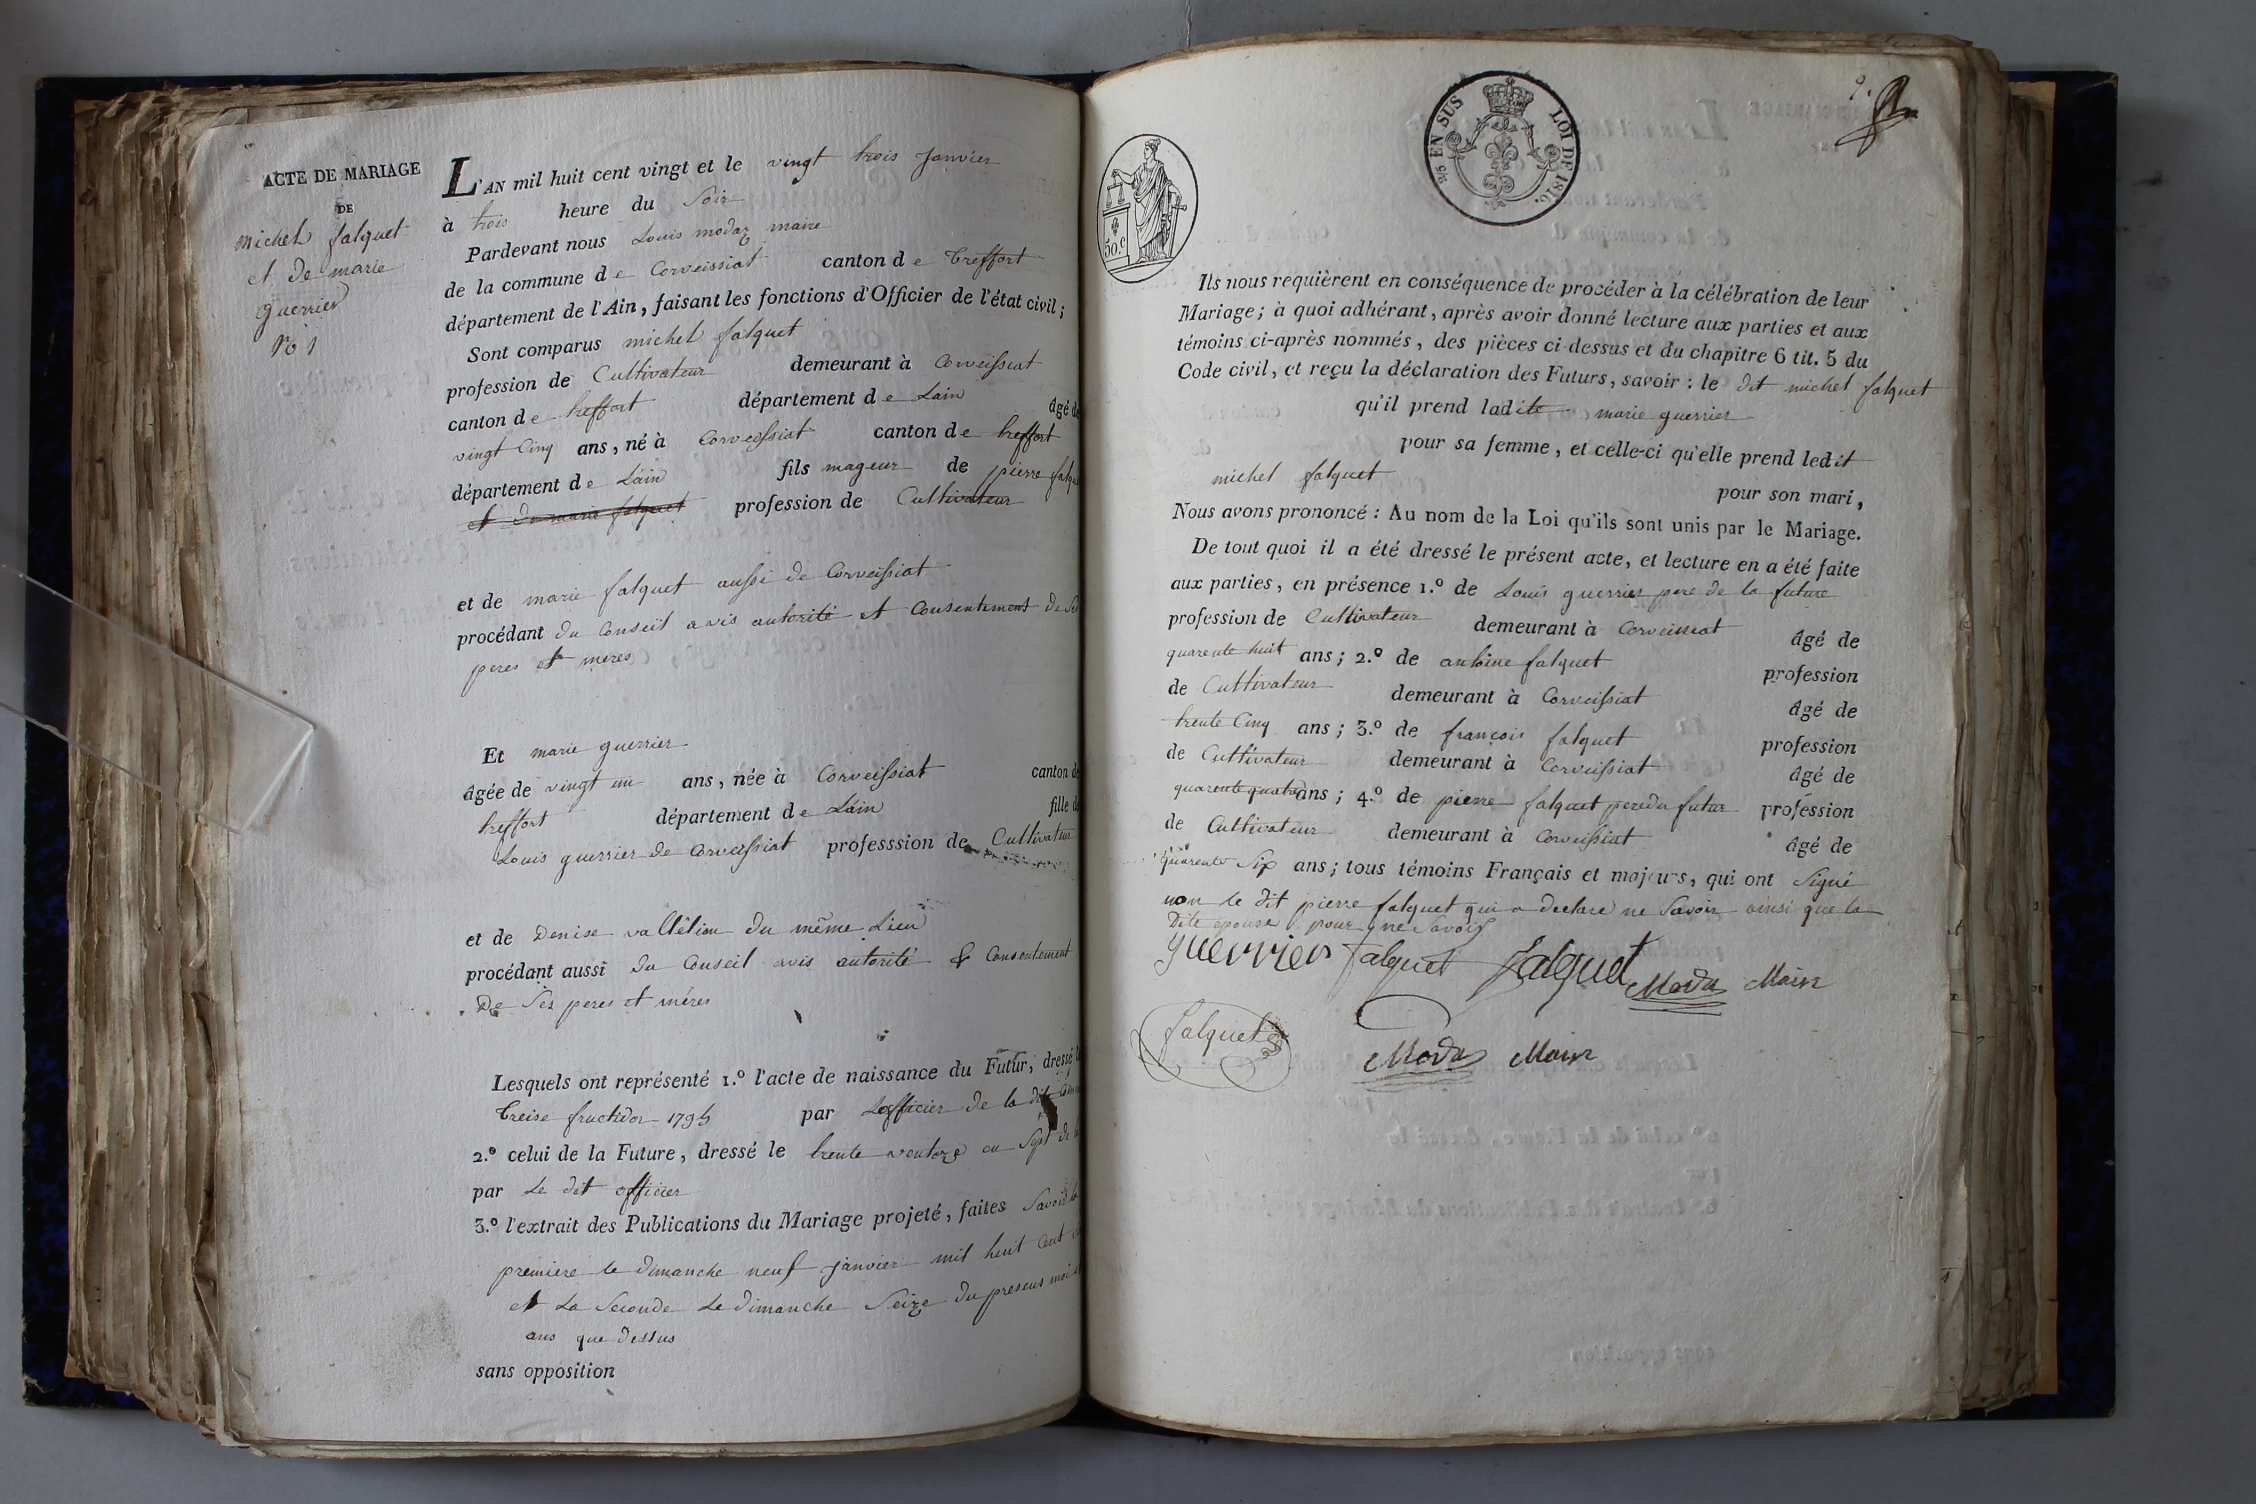 ACTE DE MARIAGE
DE
michel falquet
et de marie
guerrier
No 1
L'AN mil huit cent vingt et le vingt trois janvier
à trois heure du Soir
Pardevant nous Louis modaz maire
de la commune de Corveissiat canton de treffort
département de l'Ain, faisant les fonctions d'Officier de l'état civil;
Sont comparus michel falquet
profession de Cultivateur demeurant à Corveissiat
canton de treffort département de Lain âgé de
vingt Cinq ans, né à Corveissiat canton de treffort
département de Lain fils mageur de pierre falquet
et de marie falquet profession de Cultivateur
et de marie falquet aussi de Corveissiat
procédant du Conseil avis autorité et Consentement de Ses
peres et meres
Et marie guerrier
âgée de vingt un ans, née à Corveissiat canton de
treffort département de Lain fille de
Louis guerrier de Corveissiat professsion de Cultivateur
et de Denise du même Lieu
procédant aussi du Conseil avis autorité & Consentement
De Ses peres et méres
Lesquels ont représenté 1.º l'acte de naissance du Futur, dressé le
treise fructidor 1795 par Lofficier de la dite
2.º celui de la Future, dressé le trente ventoze an Sept de
par Le dit officier
3.º l'extrait des Publications du Mariage projeté, faites Savoir la
premiere le dimanche neuf janvier mil huit Cent
et La Seconde Le dimanche Seize du presens mois
ans que dessus
sans opposition
2.
50.c
EN SUS LOI DE 1816.
Ils nous requièrent en conséquence de procéder à la célébration de leur
Mariage; à quoi adhérant, après avoir donné lecture aux parties et aux
témoins ci-après nommés, des pièces ci-dessus et du chapitre 6 tit. 5 du
Code civil, et reçu la déclaration des Futurs, savoir: le dit michel falquet
qu'il prend ladite marie guerrier
pour sa femme, et celle-ci qu'elle prend ledit
michel falquet pour son mari,
Nous avons prononcé: Au nom de la Loi qu'ils sont unis par le Mariage.
De tout quoi il a été dressé le présent acte, et lecture en a été faite
aux parties, en présence 1.º de Louis guerrier pere de la future
profession de Cultivateur demeurant à Corveissiat âgé de
quarente huit ans; 2.º de antoine falquet profession
de Cultivateur demeurant à Corveissiat âgé de
trente Cinq ans; 3.º de françois falquet profession
de Cultivateur demeurant à Corveissiat âgé de
quarente quatre ans; 4.º de pierre falquet pere du futur profession
de Cultivateur demeurant à Corveissiat âgé de
quarente Six ans; tous témoins Français et majeurs, qui ont Signé
non le dit pierre falquet qui a declare ne Savoir ainsi que la
Dite epouse pour ne Savoir
guerrier falquet falquet Moda Maire
falquet
Moda Maire